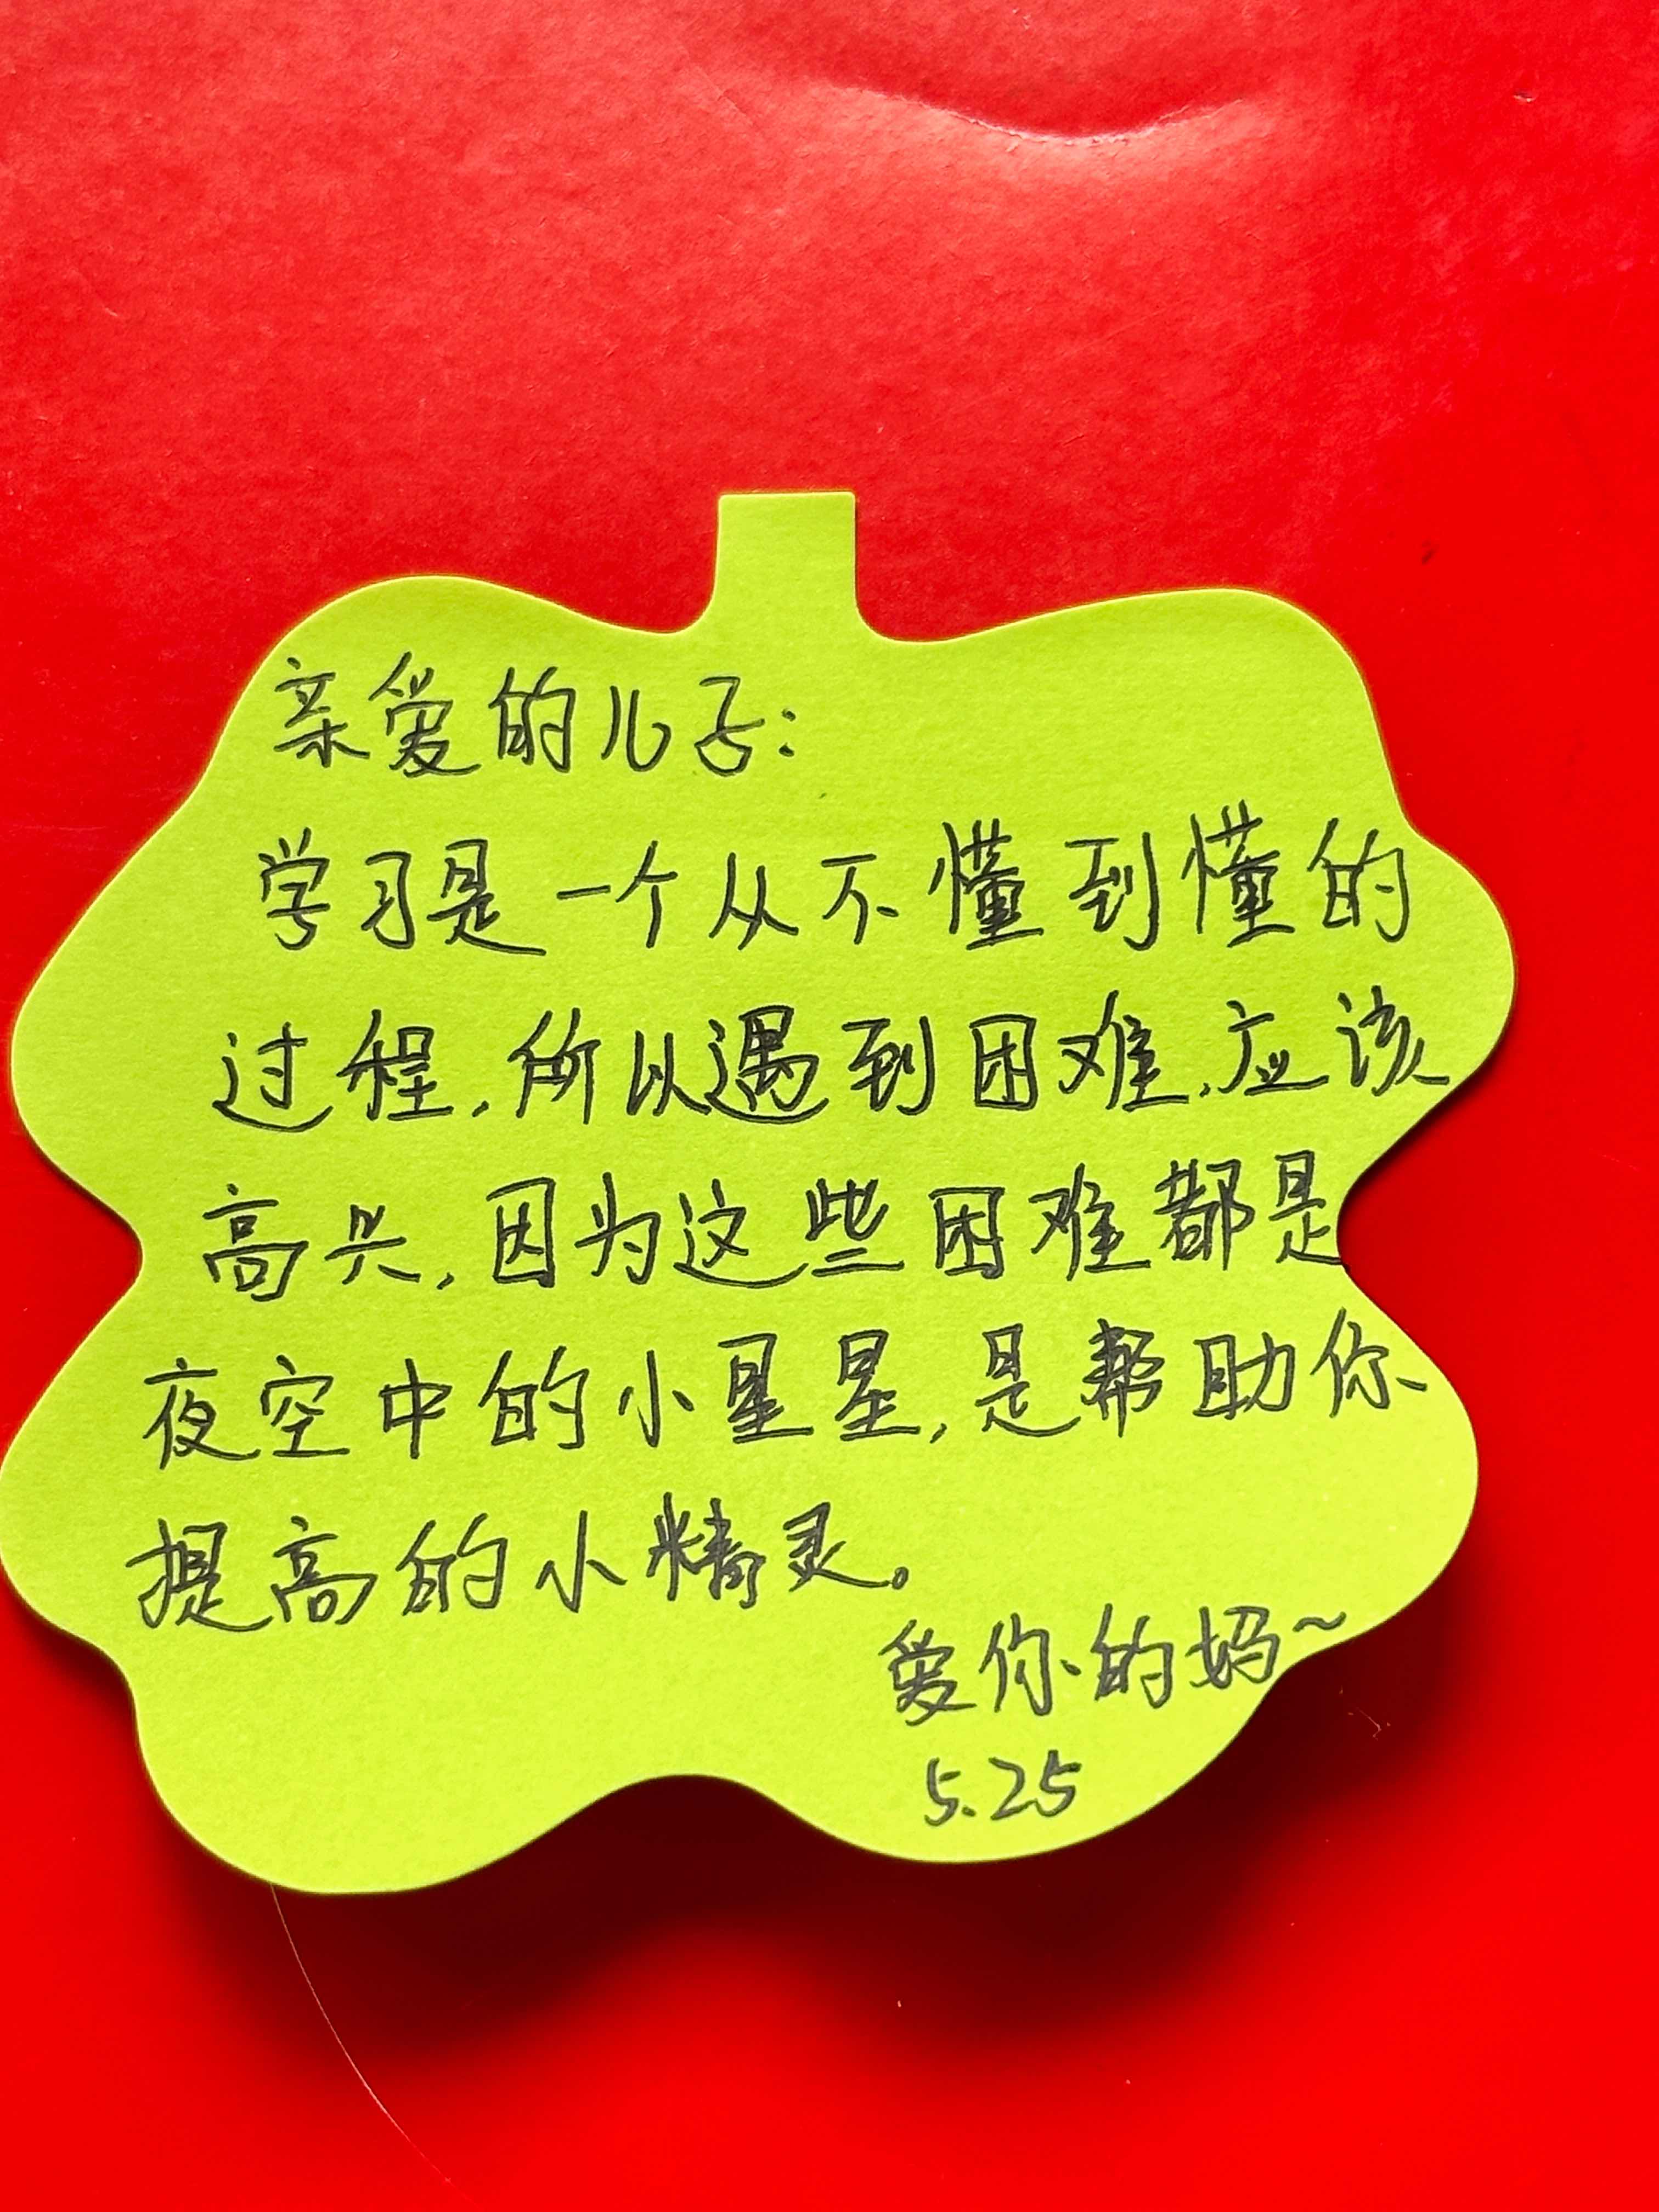 亲爱的儿子:
学习是一个从不懂到懂的
过程,所以遇到困难,应该
高兴,因为这些困难都是
夜空中的小星星,是帮助你
提高的小精灵。
爱你的妈~
5.25